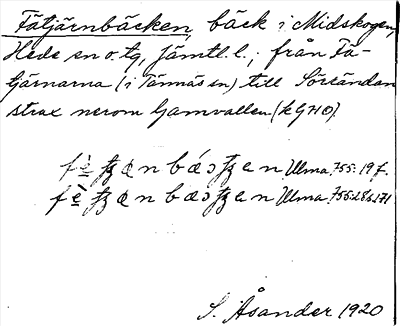 Fätjärnbäcken, bäck i Midskogen,
Hede sn o. tg, Jämtl. l.; från Fä-
tjärnarna (i Tännäs sn) till Sörsändan
strax nerom Gamvallen (k G40).
Ulma 755: 19 f.
Ulma 755: 28 s. 171
S. Åsander 1920